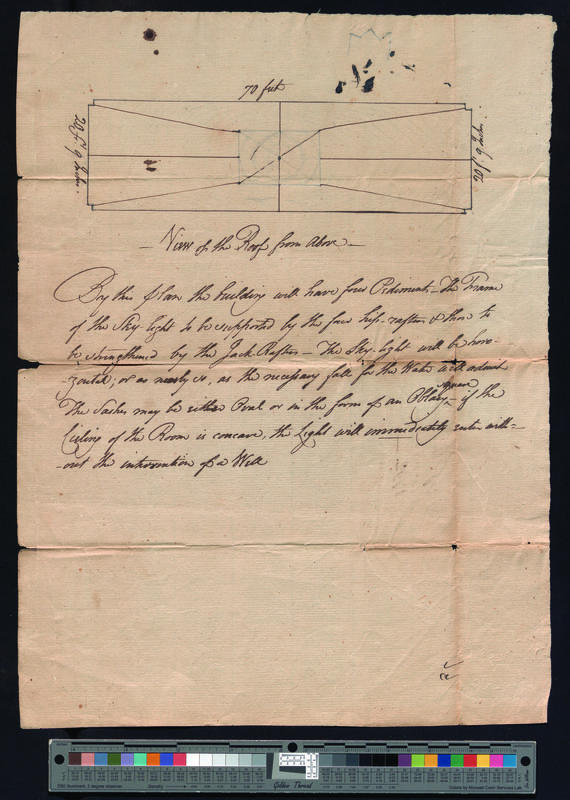 70 feet
20 f. 9 Inches.
20 f. 9 Inches.
— View of the Roof from Above —
By this plan the building will have four Pediments — The Frame
of the Sky-light to be supported by the four hip-rafters & those to
be strengthened by the Jack Rafters — The Sky-light will be hori-
-zontal, or as nearly so, as the necessary fall for the Water will admit
square
The Sashes may be either Oval or in the form of an Oblong — if the
Ceiling of the Room is concave, the Light will immediately enter with-
-out the intervention of a Well
Golden Thread